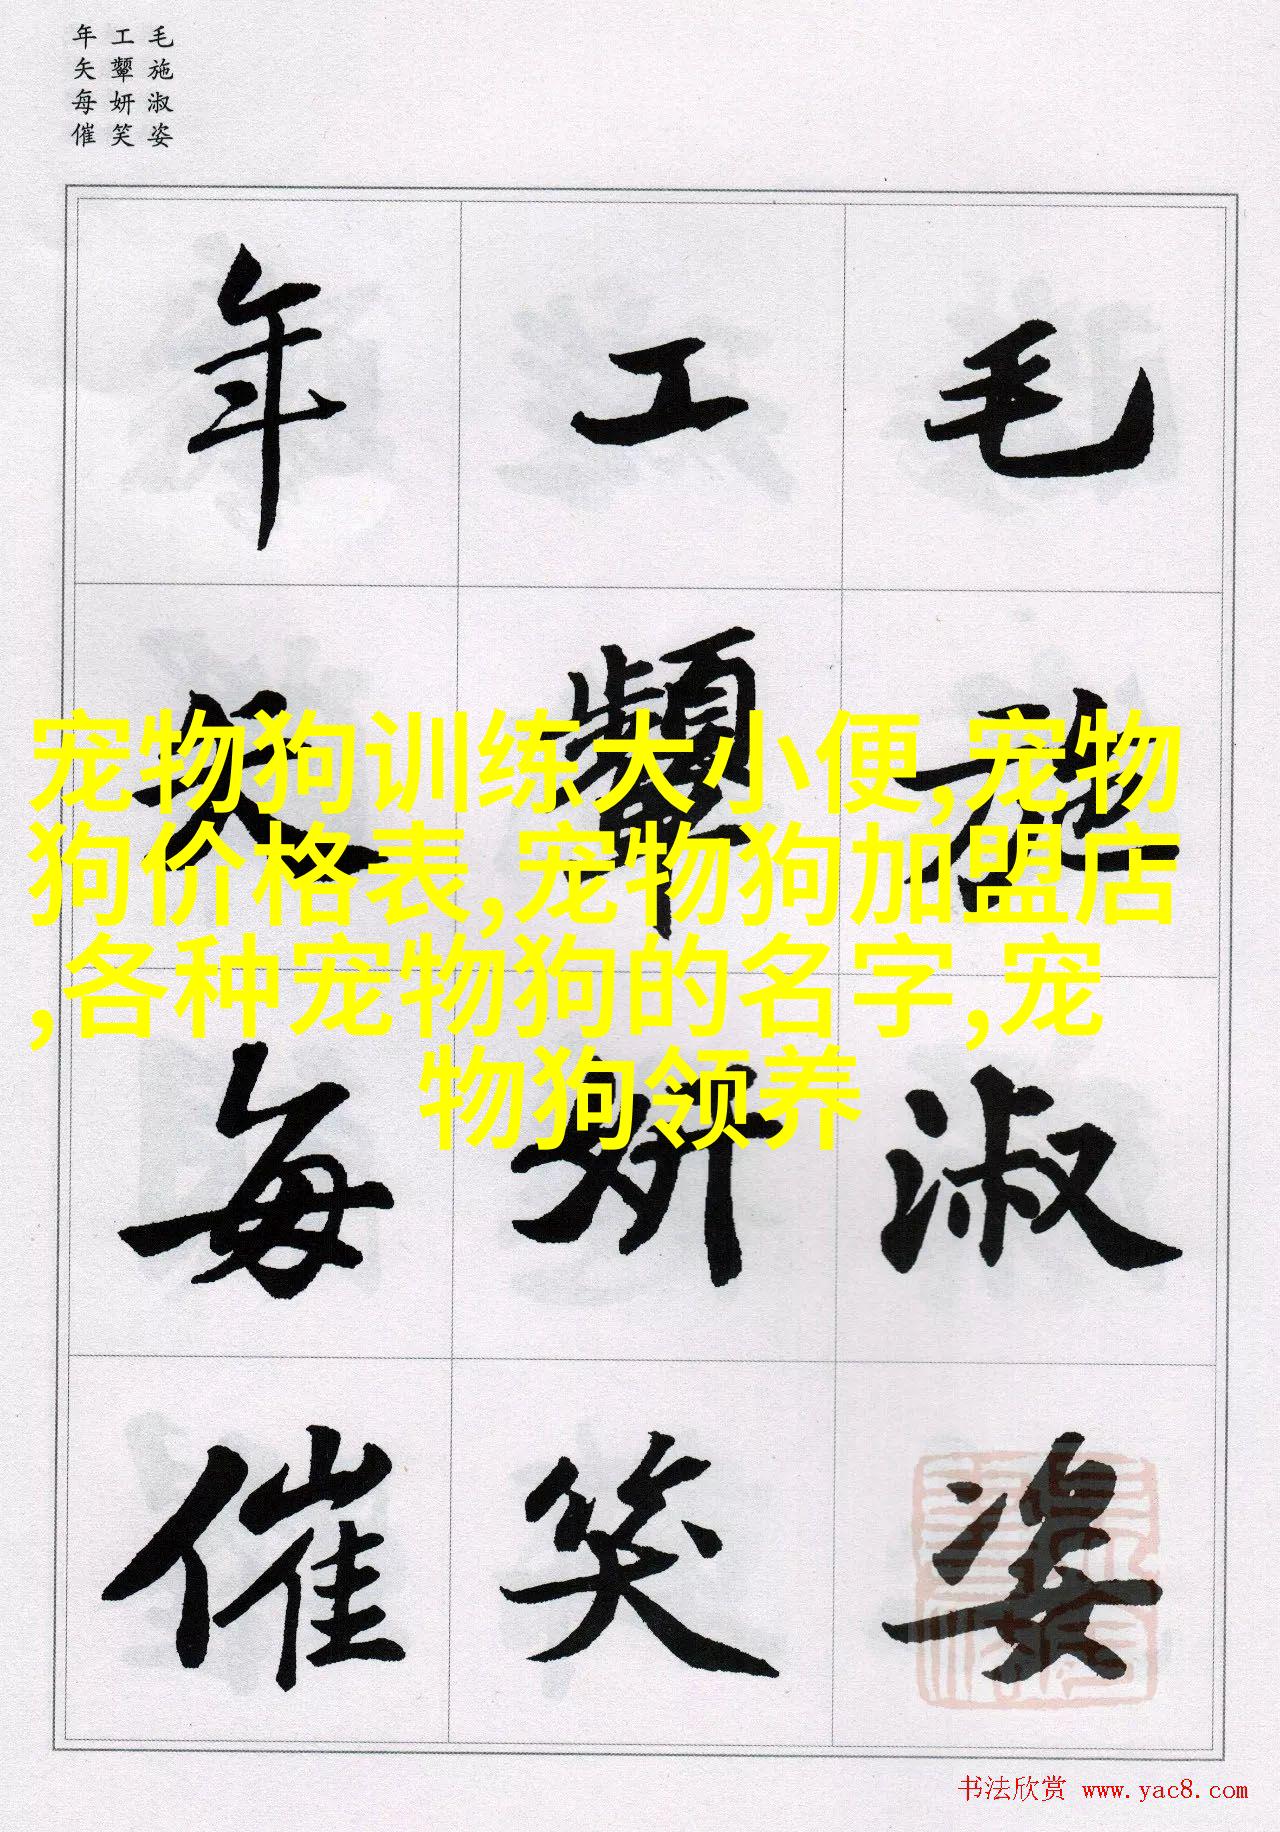 毛施淑姿
工顰妍笑
年矢每催
毛施淑姿
工顰妍笑
年矢每催
宠物狗训练大小便,宠物
狗价格表,宠物狗加盟店
,各种宠物狗的名字,宠
物狗领养
书法欣赏 www.yac8.com